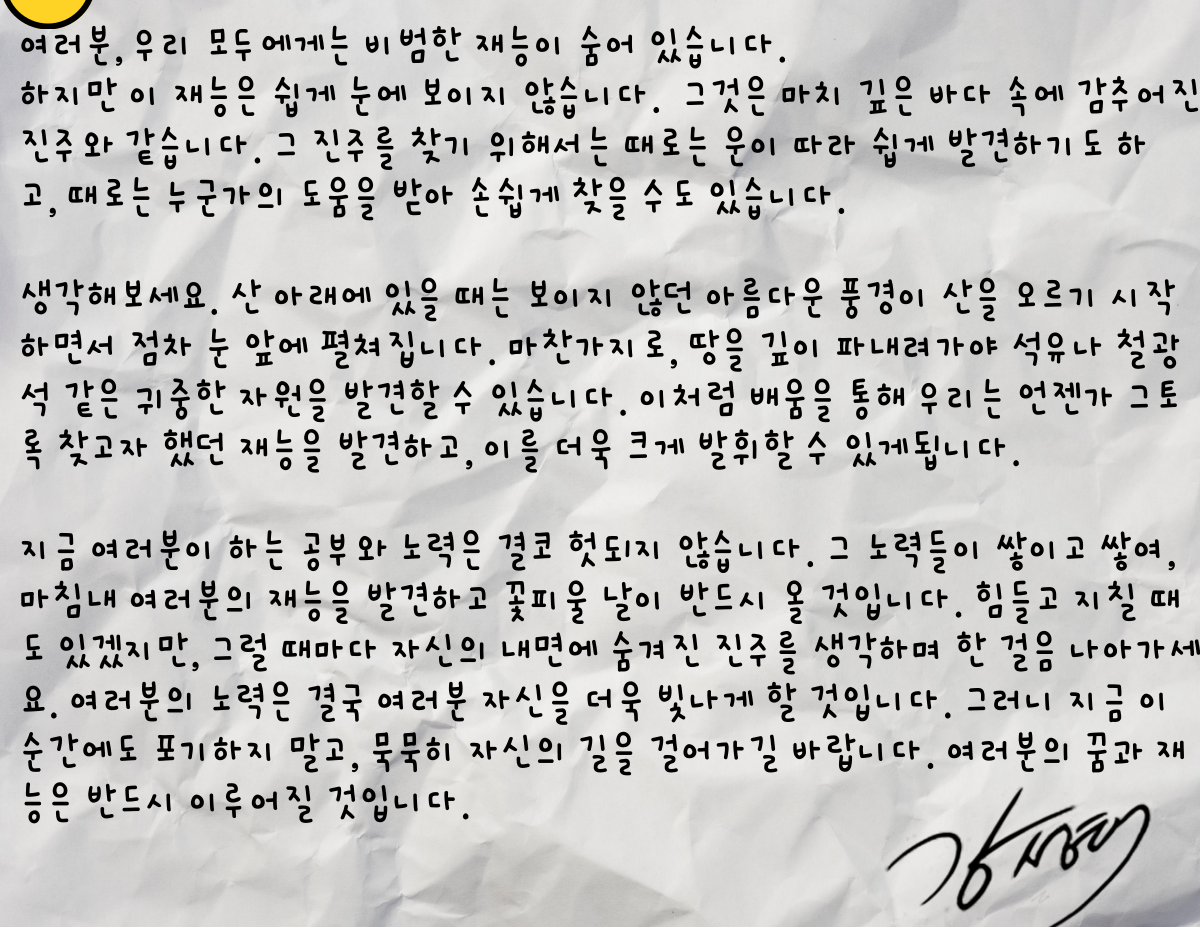 여러분, 우리 모두에게는 비범한 재능이 숨어 있습니다.
하지만 이 재능은 쉽게 눈에 보이지 않습니다. 그것은 마치 깊은 바다 속에 감추어진
진주와 같습니다. 그 진주를 찾기 위해서는 때로는 운이 따라 쉽게 발견하기도 하
고, 때로는 누군가의 도움을 받아 손쉽게 찾을 수도 있습니다.
생각해보세요. 산 아래에 있을 때는 보이지 않던 아름다운 풍경이 산을 오르기 시작
하면서 점차 눈 앞에 펼쳐집니다. 마찬가지로, 땅을 깊이 파내려가야 석유나 철광
석 같은 귀중한 자원을 발견할 수 있습니다. 이처럼 배움을 통해 우리는 언젠가 그토
록 찾고자 했던 재능을 발견하고, 이를 더욱 크게 발휘할 수 있게됩니다.
지금 여러분이 하는 공부와 노력은 결코 헛되지 않습니다. 그 노력들이 쌓이고 쌓여,
마침내 여러분의 재능을 발견하고 꽃피울 날이 반드시 올 것입니다. 힘들고 지칠 때
도 있겠지만, 그럴 때마다 자신의 내면에 숨겨진 진주를 생각하며 한 걸음 나아가세
요. 여러분의 노력은 결국 여러분 자신을 더욱 빛나게 할 것입니다. 그러니 지금 이
순간에도 포기하지 말고, 묵묵히 자신의 길을 걸어가길 바랍니다. 여러분의 꿈과 재
능은 반드시 이루어질 것입니다.